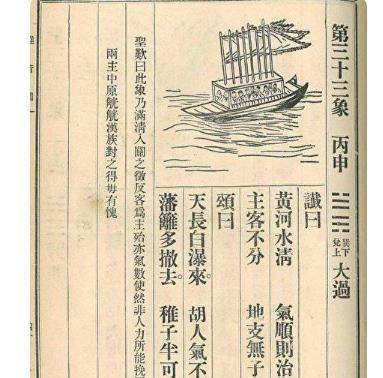 第三十三象 丙申 巽下兌上 大過
讖曰
黃河水清 氣順則治
主客不分 地支無子
頌曰
天長白瀑來。 胡人氣不
藩籬多撤去 稚子半可
聖歎曰此象乃滿清入關之徵反客爲主殆亦氣數使然非人力所能挽
兩主中原觥觥漢族對之得毋有愧